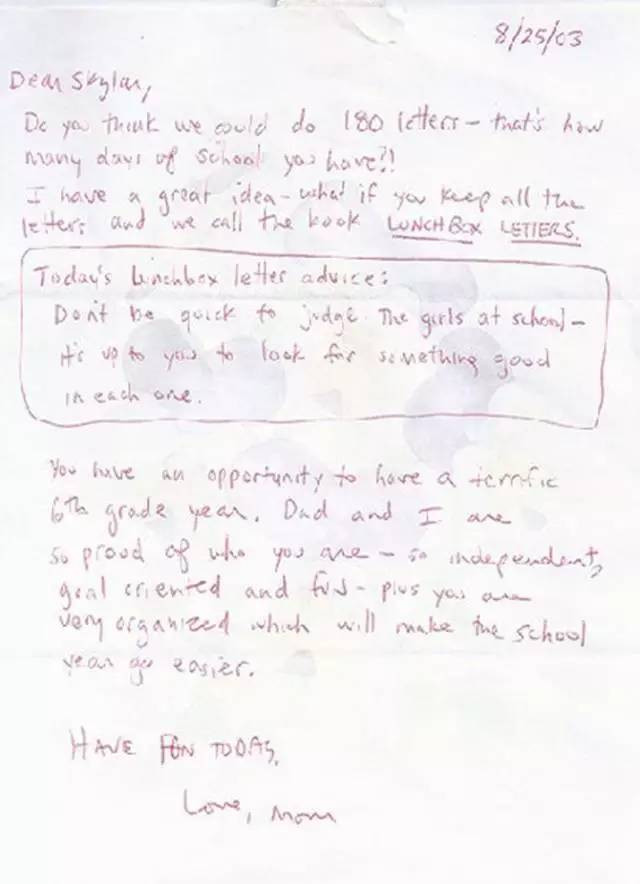 8/25/03
Dear Skylar,
Do you think we could do 180 letters - that's how
many days of school you have?!
I have a great idea - what if you keep all the
letters and we call the book LUNCHBOX LETTERS.
Today's lunchbox letter advice:
Don't be quick to judge the girls at school -
it's up to you to look for something good
in each one.
You have an opportunity to have a terrific
6th grade year. Dad and I are
so proud of who you are - so independent,
goal oriented and fun - plus you are
very organized which will make the school
year go easier.
HAVE FUN TODAY,
Love, Mom